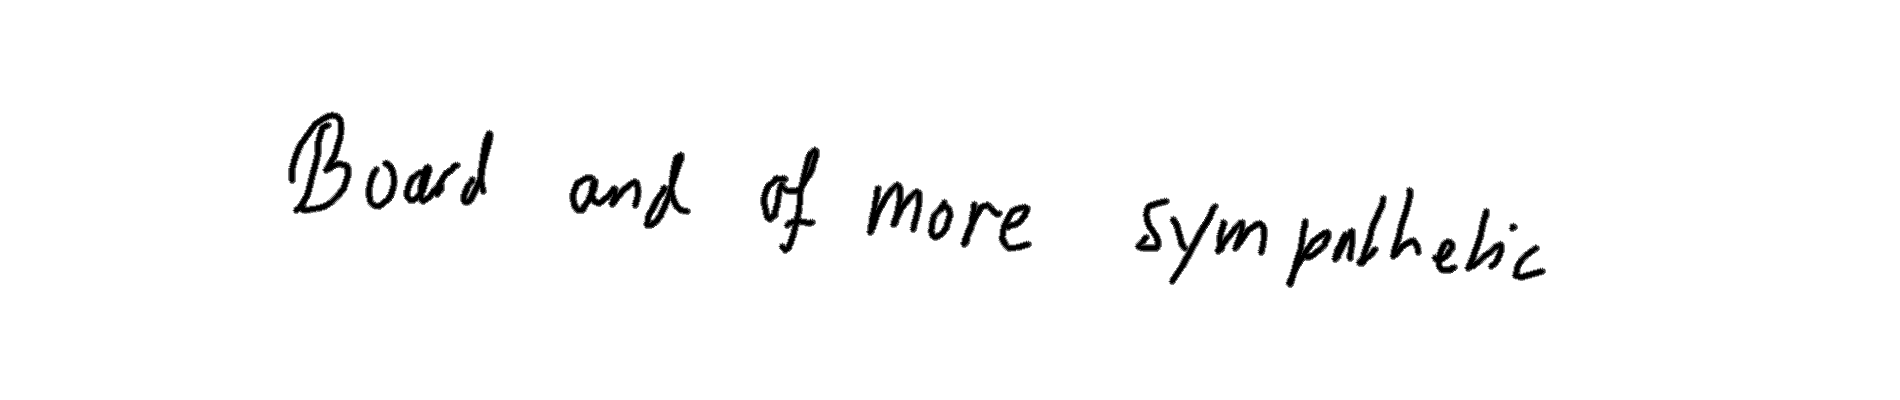 Board and of more sympathetic